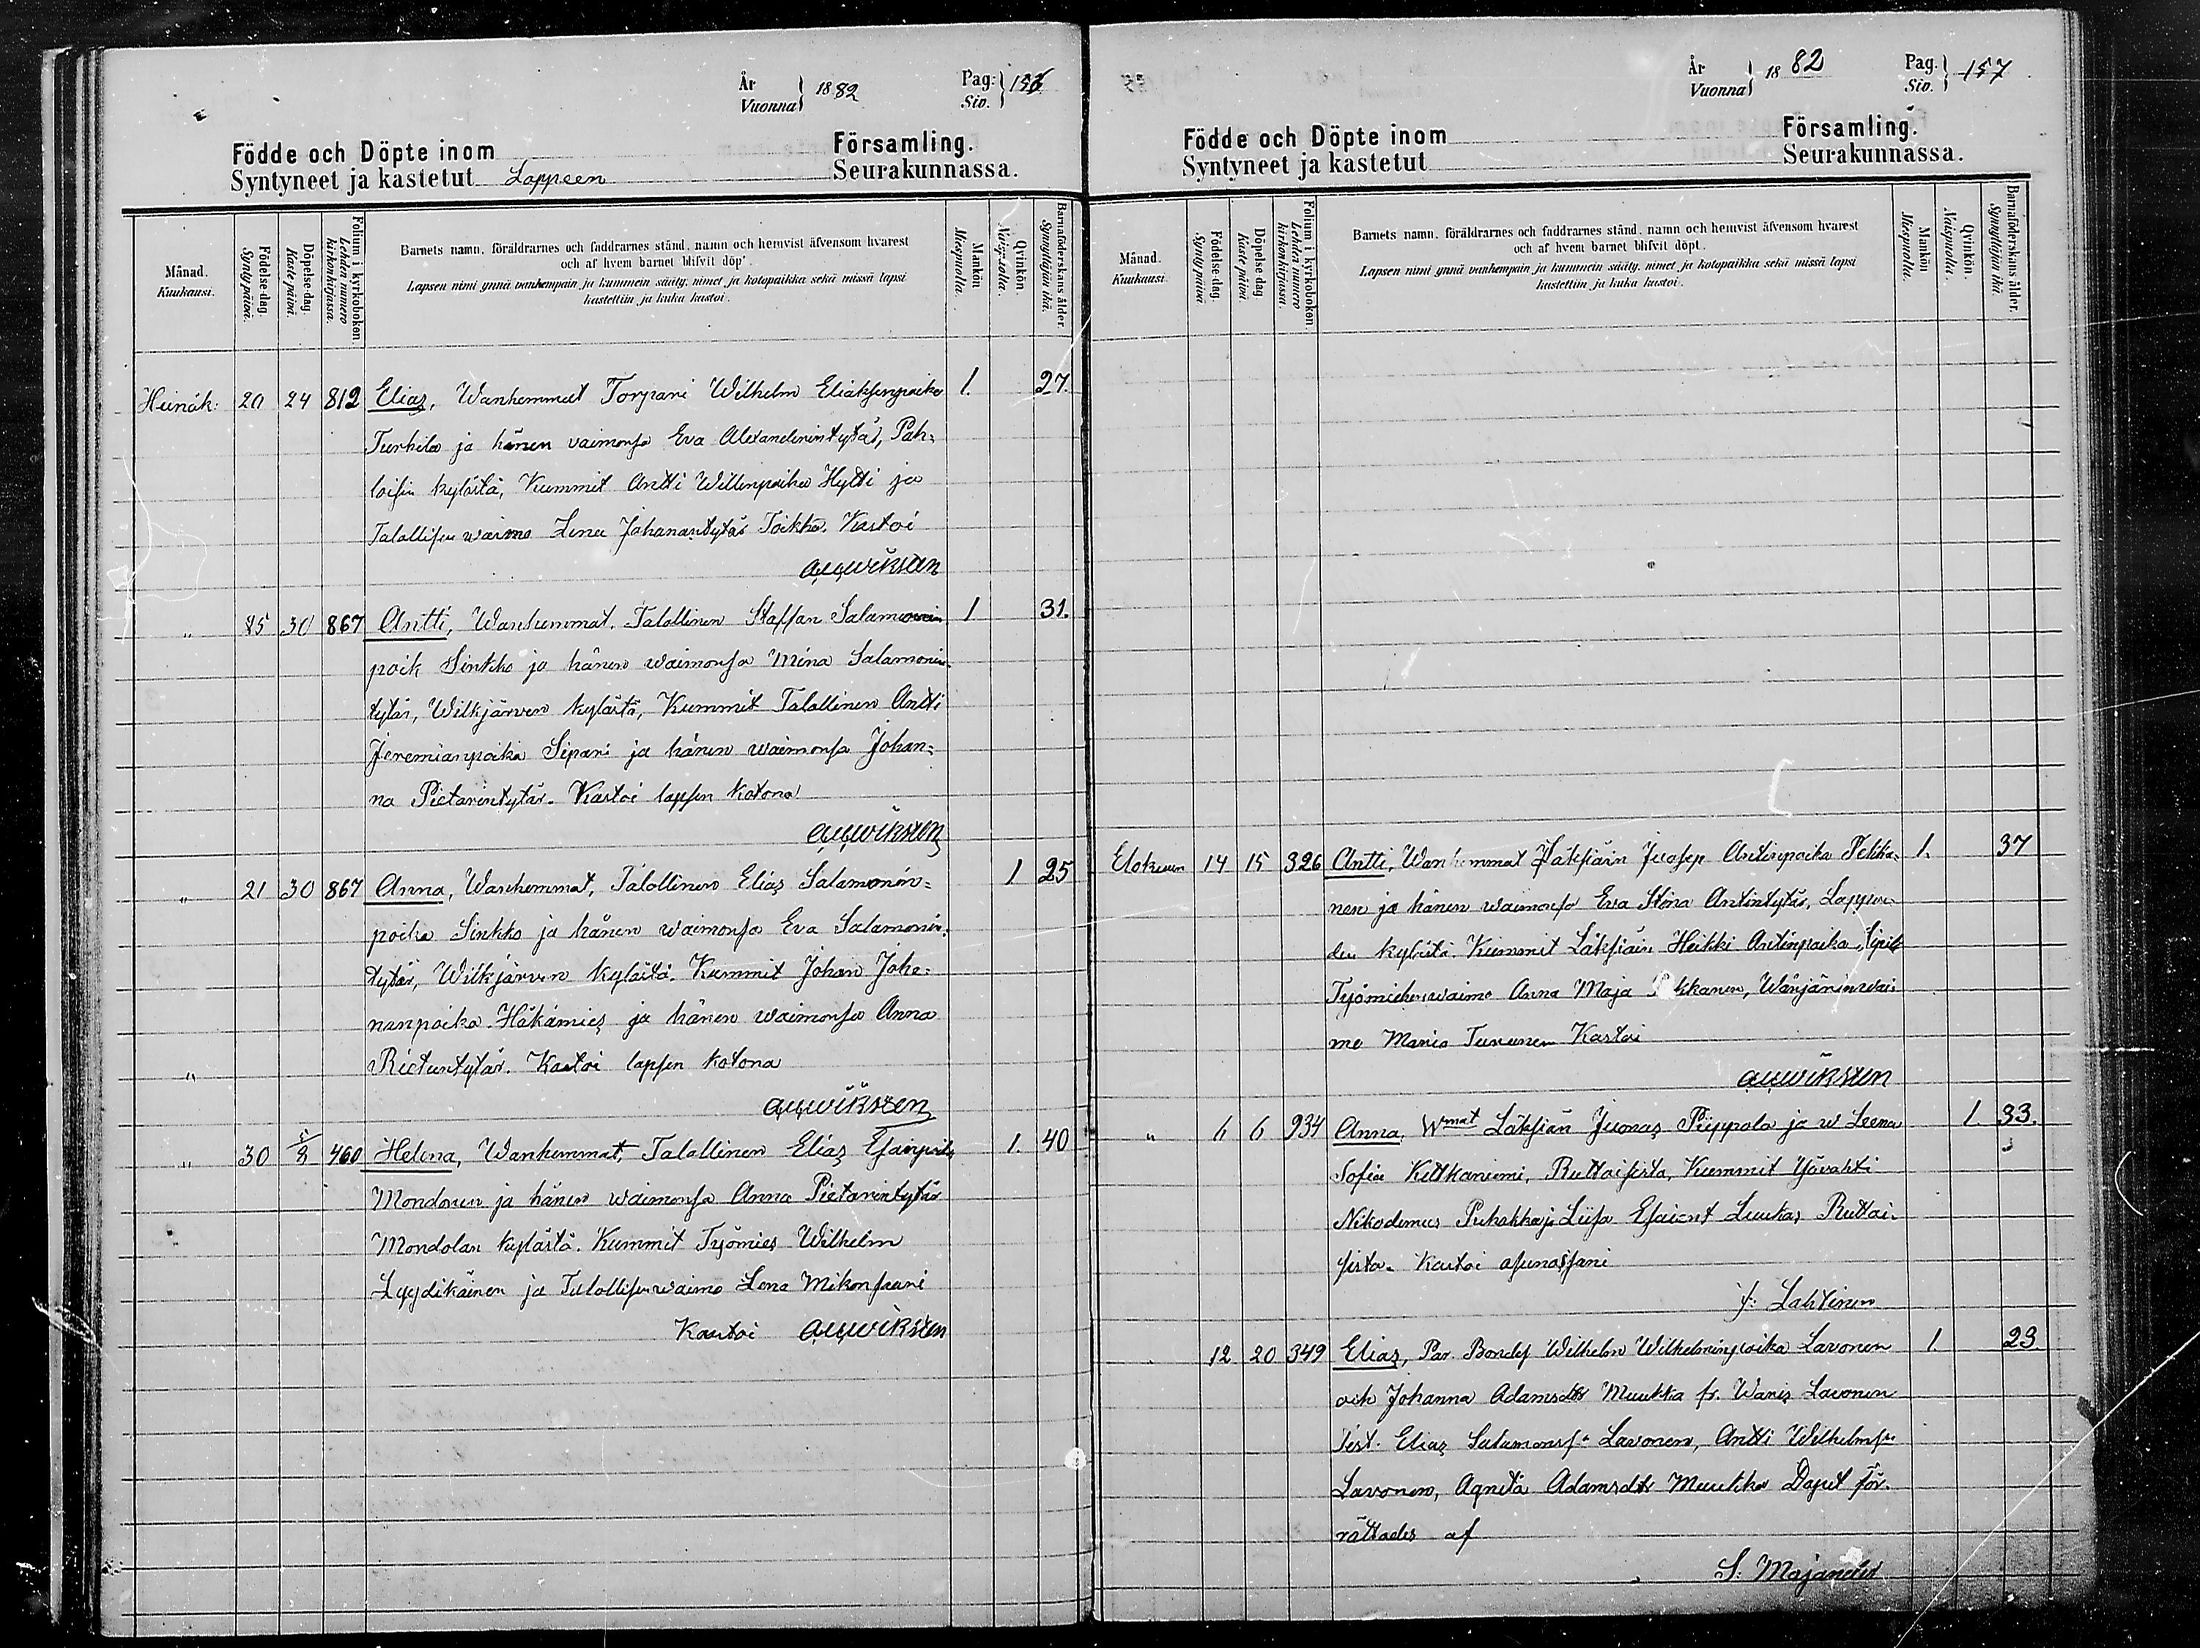 År
Vuonna
1882
Pag.
Siv.
156
Födde och Döpte inom
Församling.
Syntyneet ja kastetut Lappeen Seurakunnassa.
Månad.
Kuukausi.
Födelse-dag.
Synty päivä.
Döpelse-dag.
Kaste päivä.
Folium i kyrkoboken
Lehden numero kirkonkirjassa.
Barnets namn, föräldrarnes och faddrarnes stånd, namn och hemvist äfvensom hvarest
och af hvem barnet blifvit döpt.
Lapsen nimi ynnä vanhempain ja kummein sääty, nimet ja kotopaikka sekä missä lapsi
kastettiin ja kuka kastoi.
Mankön
Miespuolia.
Qvinkön.
Naispuolia.
Barnaföderskans ålder.
Synnyttäjän ikä.
Heinäk: 20 24 812 Elias, Wanhemmat Torppari Wilhelm Eliaksenpoika 1. 27.
Turkila ja hänen vaimonsa Eva Alexanderintytär, Pah-
loisin kylästä, Kummit Antti Willenpoika Hytti ja
Talollisen waimo Lena Johanantytär Toikka. Kastoi
Aug Wiksten
" 25 30 867 Antti, Wanhemmat. Talollinen Staffan Salamonin 1 31.
poik Sinkko ja hänen waimonsa Mina Salamonin-
tytär, Wilkjärven kylästä, Kummit Talollinen Antti
Jeremianpoika Sipari ja hänen waimonsa Johan-
na Pietarintytär. Kastoi lapsen kotona
Aug Wiksten
" 21 30 867 Anna, Wanhemmat, Talollinen Elias Salamonin- 1 25
poika Sinkko ja hänen waimonsa Eva Salamonin-
tytär, Wilkjärven kylästä. Kummit Johan Joha-
nanpoika Häkämies ja hänen waimonsa Anna
" Kastoi lapsen kotona
Aug Wiksten
" 30 5/8 460 Helena, Wanhemmat, Talollinen Elias Esainpoik 1. 40
Mondonen ja hänen waimonsa Anna Pietarintytär
Mondolan kylästä. Kummit Työmies Wilhelm
Lyydikäinen ja Talollisenwaimo Lena Mikonpaani
Kastoi Aug Wiksten
År
Vuonna
1882
Pag.
Siv.
157
Födde och Döpte inom
Församling.
Syntyneet ja kastetut
Seurakunnassa.
Månad.
Kuukausi.
Födelse-dag.
Synty päivä.
Döpelse-dag
Kaste päivä.
Folium i kyrkoboken.
Lehden numero kirkonkirjassa.
Barnets namn, föräldrarnes och faddrarnes stånd, namn och hemvist äfvensom hvarest
och af hvem barnet blifvit döpt.
Lapsen nimi ynnä vanhempain ja kummein sääty, nimet ja kotopaikka sekä missä lapsi
kastettiin ja kuka kastoi.
Mankön
Miespuolia.
Qvinkön.
Naispuolia.
Barnaföderskans ålder.
Synnyttäjän ikä.
Elokuun 14 15 326 Antti, Wanhemmat Läksiäin Juosep Antinpoika Pekka- 1. 37
nen ja hänen waimonsa Eva Stina Antintytär, Lappeen-
den kylästä. Kummit Läksiäin Heikki Antinpoika,
Työmiehenwaimo Anna Maja Pekkanen, Wänjärinwai-
mo Maria Tununen Kastoi
Aug Wiksten
" 6 6 934 Anna, Wmat Läksiän Juonas Piippola ja w Leena 1. 33.
Sofia Kitkaniemi, Ruttaisista, Kummit Yövahti
Nikodemus Puhakka ja Liisa Esaient Luukas Ruttai-
sista. Kastoi apunassani
J: Lahtinen
12 20 349 Elias, Par. Bondes Wilhelm Wilhelminpoika Lavonen 1 23
och Johanna Adamsdtr Muukka fr. Wanis Lavonen
Test. Elias Salamons Lavonen, Antti Wilhelms
Lavonen, Agneta Adamsdtr Muukka Dopet för-
rättades af
S: Majander